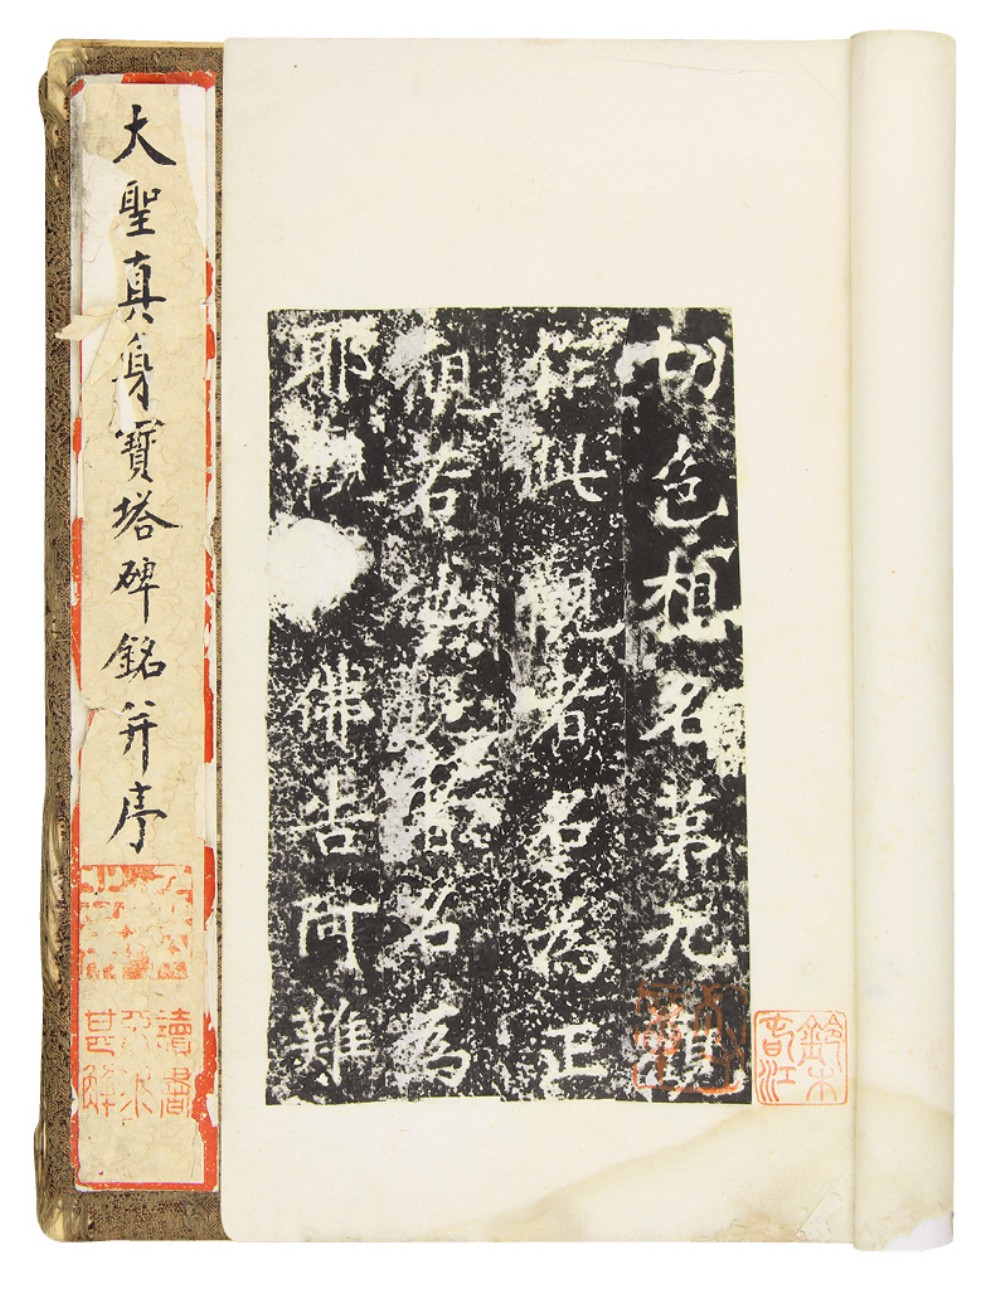 大聖真身寶塔碑銘并序
讀書
不求
甚解
切色想名第九觀
作此觀者名為正
觀若他觀者名為
耶觀佛告阿難
鈴木